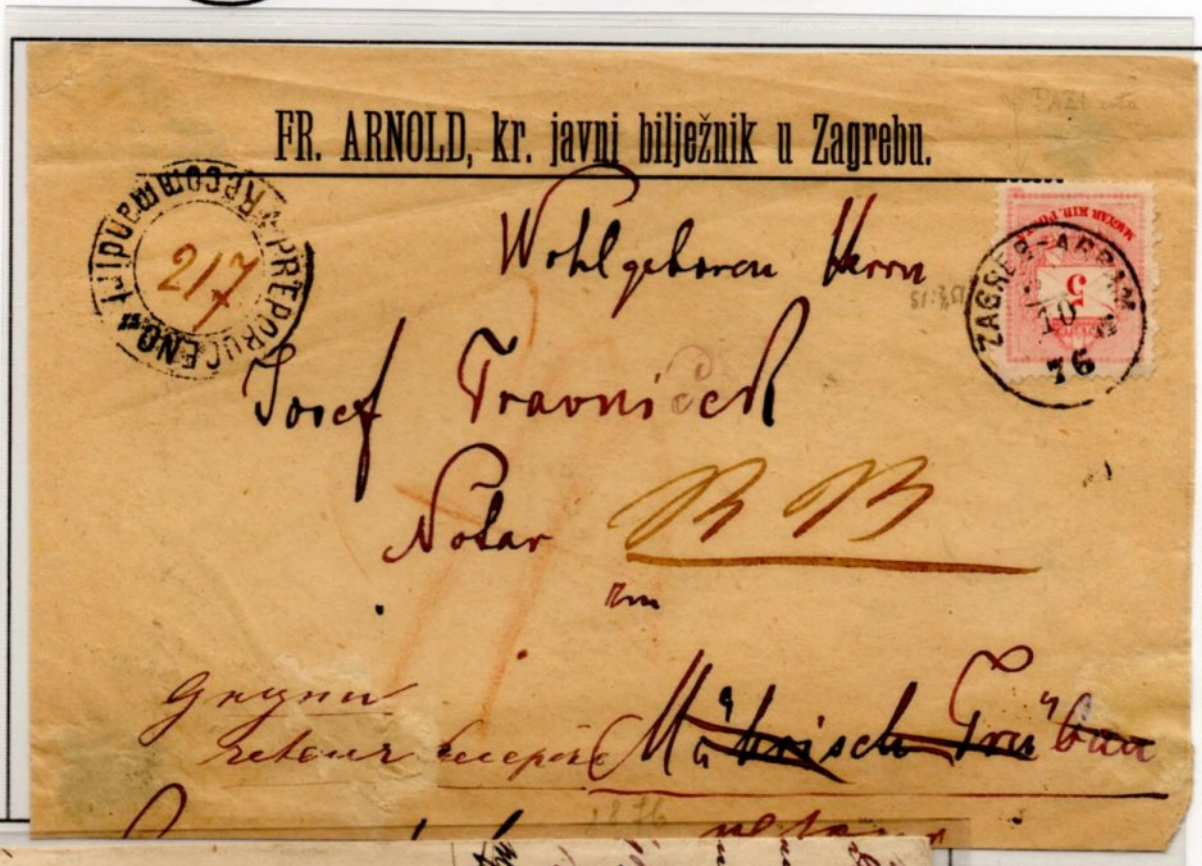 FR. ARNOLD, kr. javni bilježnik u Zagrebu.
Recommandirt PREPORUČENO
217
MAGYAR KIR. PO
5
ZAGREB-AGRAM
10
76
Wohlgeboren Herrn
Josef Travniček
Notar
RB
in
Gegen
retour recepisse
Mährisch Trübau
1876